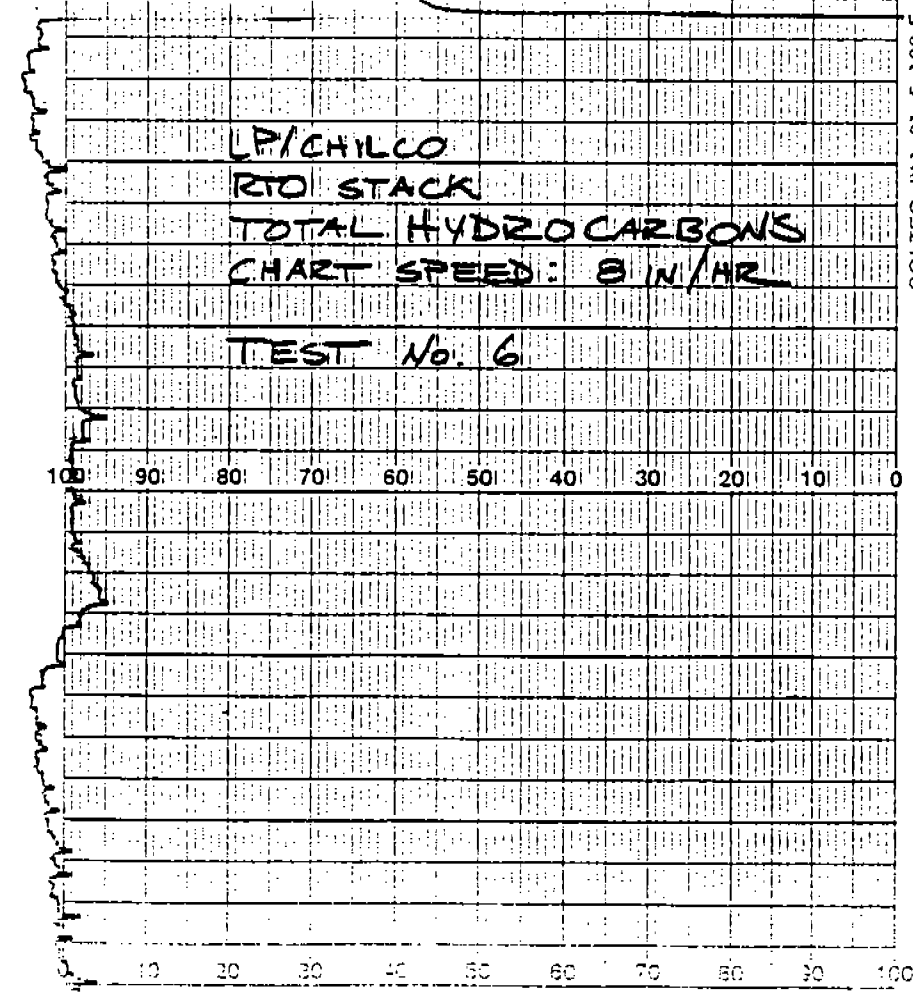 LP/CHILCO
RTO STACK
TOTAL HYDROCARBONS
CHART SPEED: 8 IN/HR
TEST No. 6
100 90 80 70 60 50 40 30 20 10 0
0 10 20 30 40 50 60 70 80 90 100